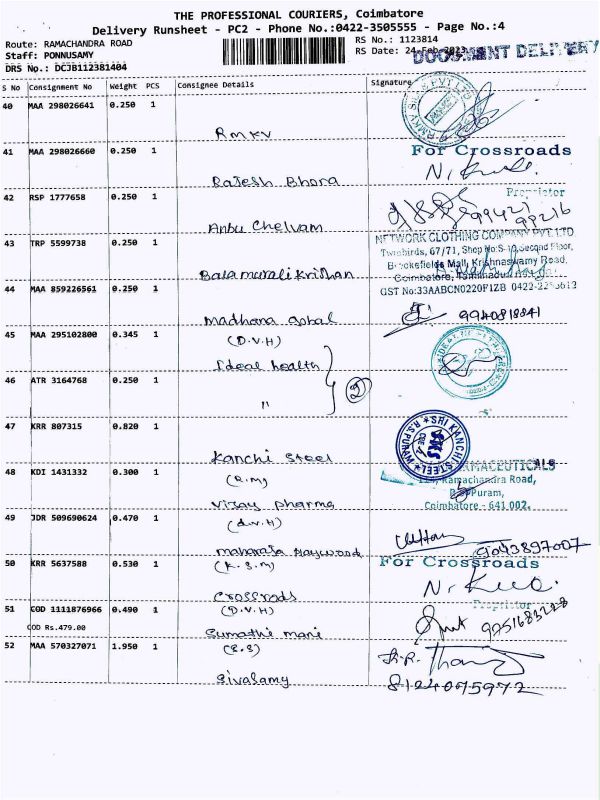 THE PROFESSIONAL COURIERS, Coimbatore
Delivery Runsheet - PC2 - Phone No.:0422-3505555 - Page No.:4
Route: RAMACHANDRA ROAD
RS No.: 1123814
Staff: PONNUSAMY
RS Date: 24-Feb-2023
DOCUMENT DELIVERY
DRS No.: DCJB112381404
S No Consignment No Weight PCS Consignee Details Signature
40 MAA 298026641 0.250 1
Rmkv
41 MAA 298026660 0.250 1
For Crossroads
Rajesh Bhora
Proprietor
42 RSP 1777658 0.250 1
Anbu Chelvam
43 TRP 5599738 0.250 1
NETWORK CLOTHING COMPANY PVT LTD
Twinbirds, 67/71, Shop No:S-10, Second Floor,
Brookefields Mall, Krishnaswamy Road,
Balamuralikrishnan
Coimbatore, Tamilnadu
44 MAA 859226561 0.250 1
GST No:33AABCN0220F1ZB 0422-
Madhana gopal
9940818841
45 MAA 295102800 0.345 1
(D.V.H)
Ideal health
46 ATR 3164768 0.250 1
"
2
47 KRR 807315 0.820 1
SRI KANCHI STEEL
R.S.PURAM
SKS
Kanchi Steel
48 KDI 1431332 0.300 1
(R.M)
Ramachandra Road,
Vijay pharma
R.S.Puram,
Coimbatore - 641 002.
49 JDR 509690624 0.470 1
(D.V.H)
maharaja Haywood
9043897007
50 KRR 5637588 0.530 1
(K.S.M)
For Crossroads
Crossroads
51 COD 1111876966 0.490 1
(D.V.H)
Proprietor
COD Rs.479.00
Sumathi mani
52 MAA 570327071 1.950 1
(S.S)
Sivasamy
8124075972